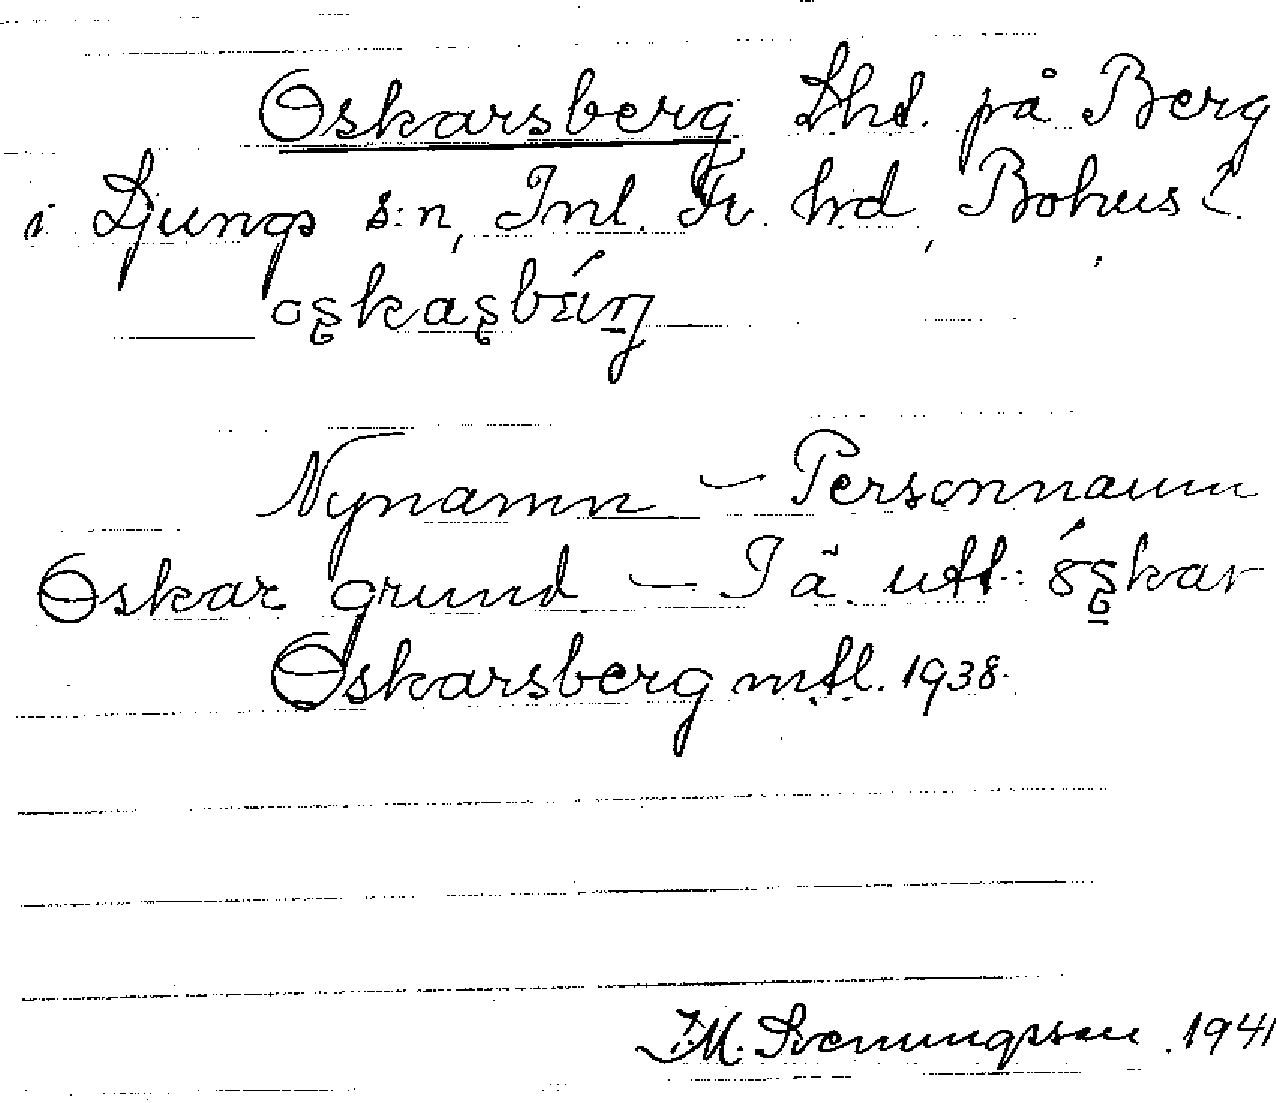 Oskarsberg Lhd. på Berg
i Ljungs s:n, Inl. Fr. hd, Bohus l.
Nynamn — Personnamn
Oskar grund — I ä utt.: óskar
Oskarsberg mtl. 1938.
J.M. Svenungsson 1941